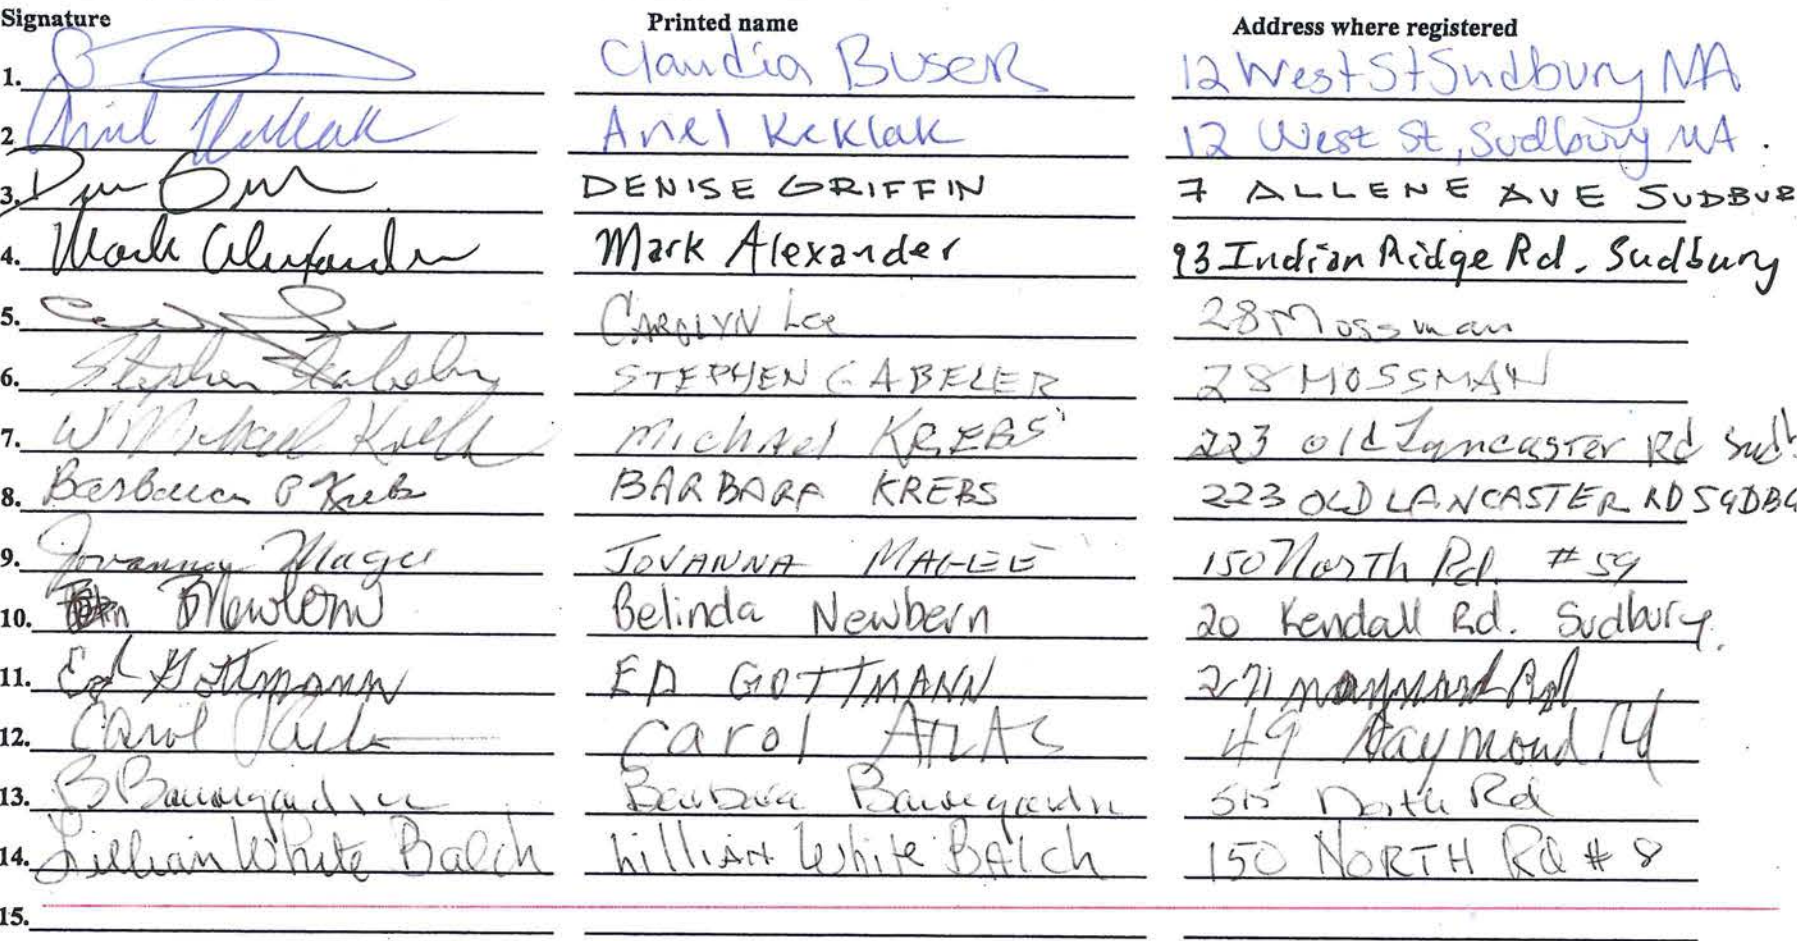 Signature Printed name Address where registered
1. Claudia BUSER 12 West St Sudbury MA
2 Ariel Keklak 12 West St, Sudbury MA.
3. DENISE GRIFFIN 7 ALLENE AVE SUDBUR
4. Mark Alexander Mark Alexander 93 Indian Ridge Rd. Sudbury
5. CAROLYN Lee 28 Mossman
6. Stephen Gabeler STEPHEN GABELER 28 MOSSMAN
7. W Michael Krebs Michael KREBS 223 old Lancaster Rd Sudb
8. Barbara P Krebs BARBARA KREBS 223 OLD LANCASTER RD SUDBU
9. Jovanna Magee JOVANNA MAGEE 150 North Rd. #59
10. B Newbern Belinda Newbern 20 Kendall Rd. Sudbury.
11. Ed Gottmann ED GOTTMANN 271 maynard Rd
12. Carol carol ATLAS 49 Raymond Rd
13. B Baumgardner Barbara Baumgardner 515 North Rd
14. Lillian White Balch Lillian White BAlch 150 NORTH Rd # 8
15.